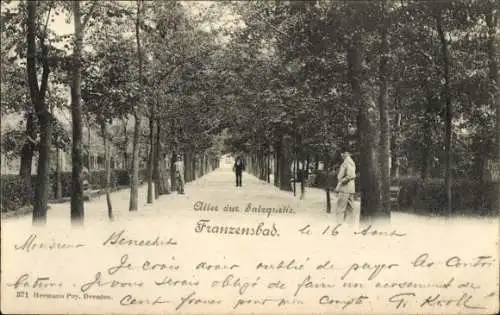 Allee zur Salzquelle.
Franzensbad. le 16 Août
Monsieur Benedikt
Je crois avoir oublié de payer Au Contri
butions. Je vous serais obligé de faire un versement de
cent francs pour mon Compte Fr. Kroll
371 Hermann Poy, Dresden.